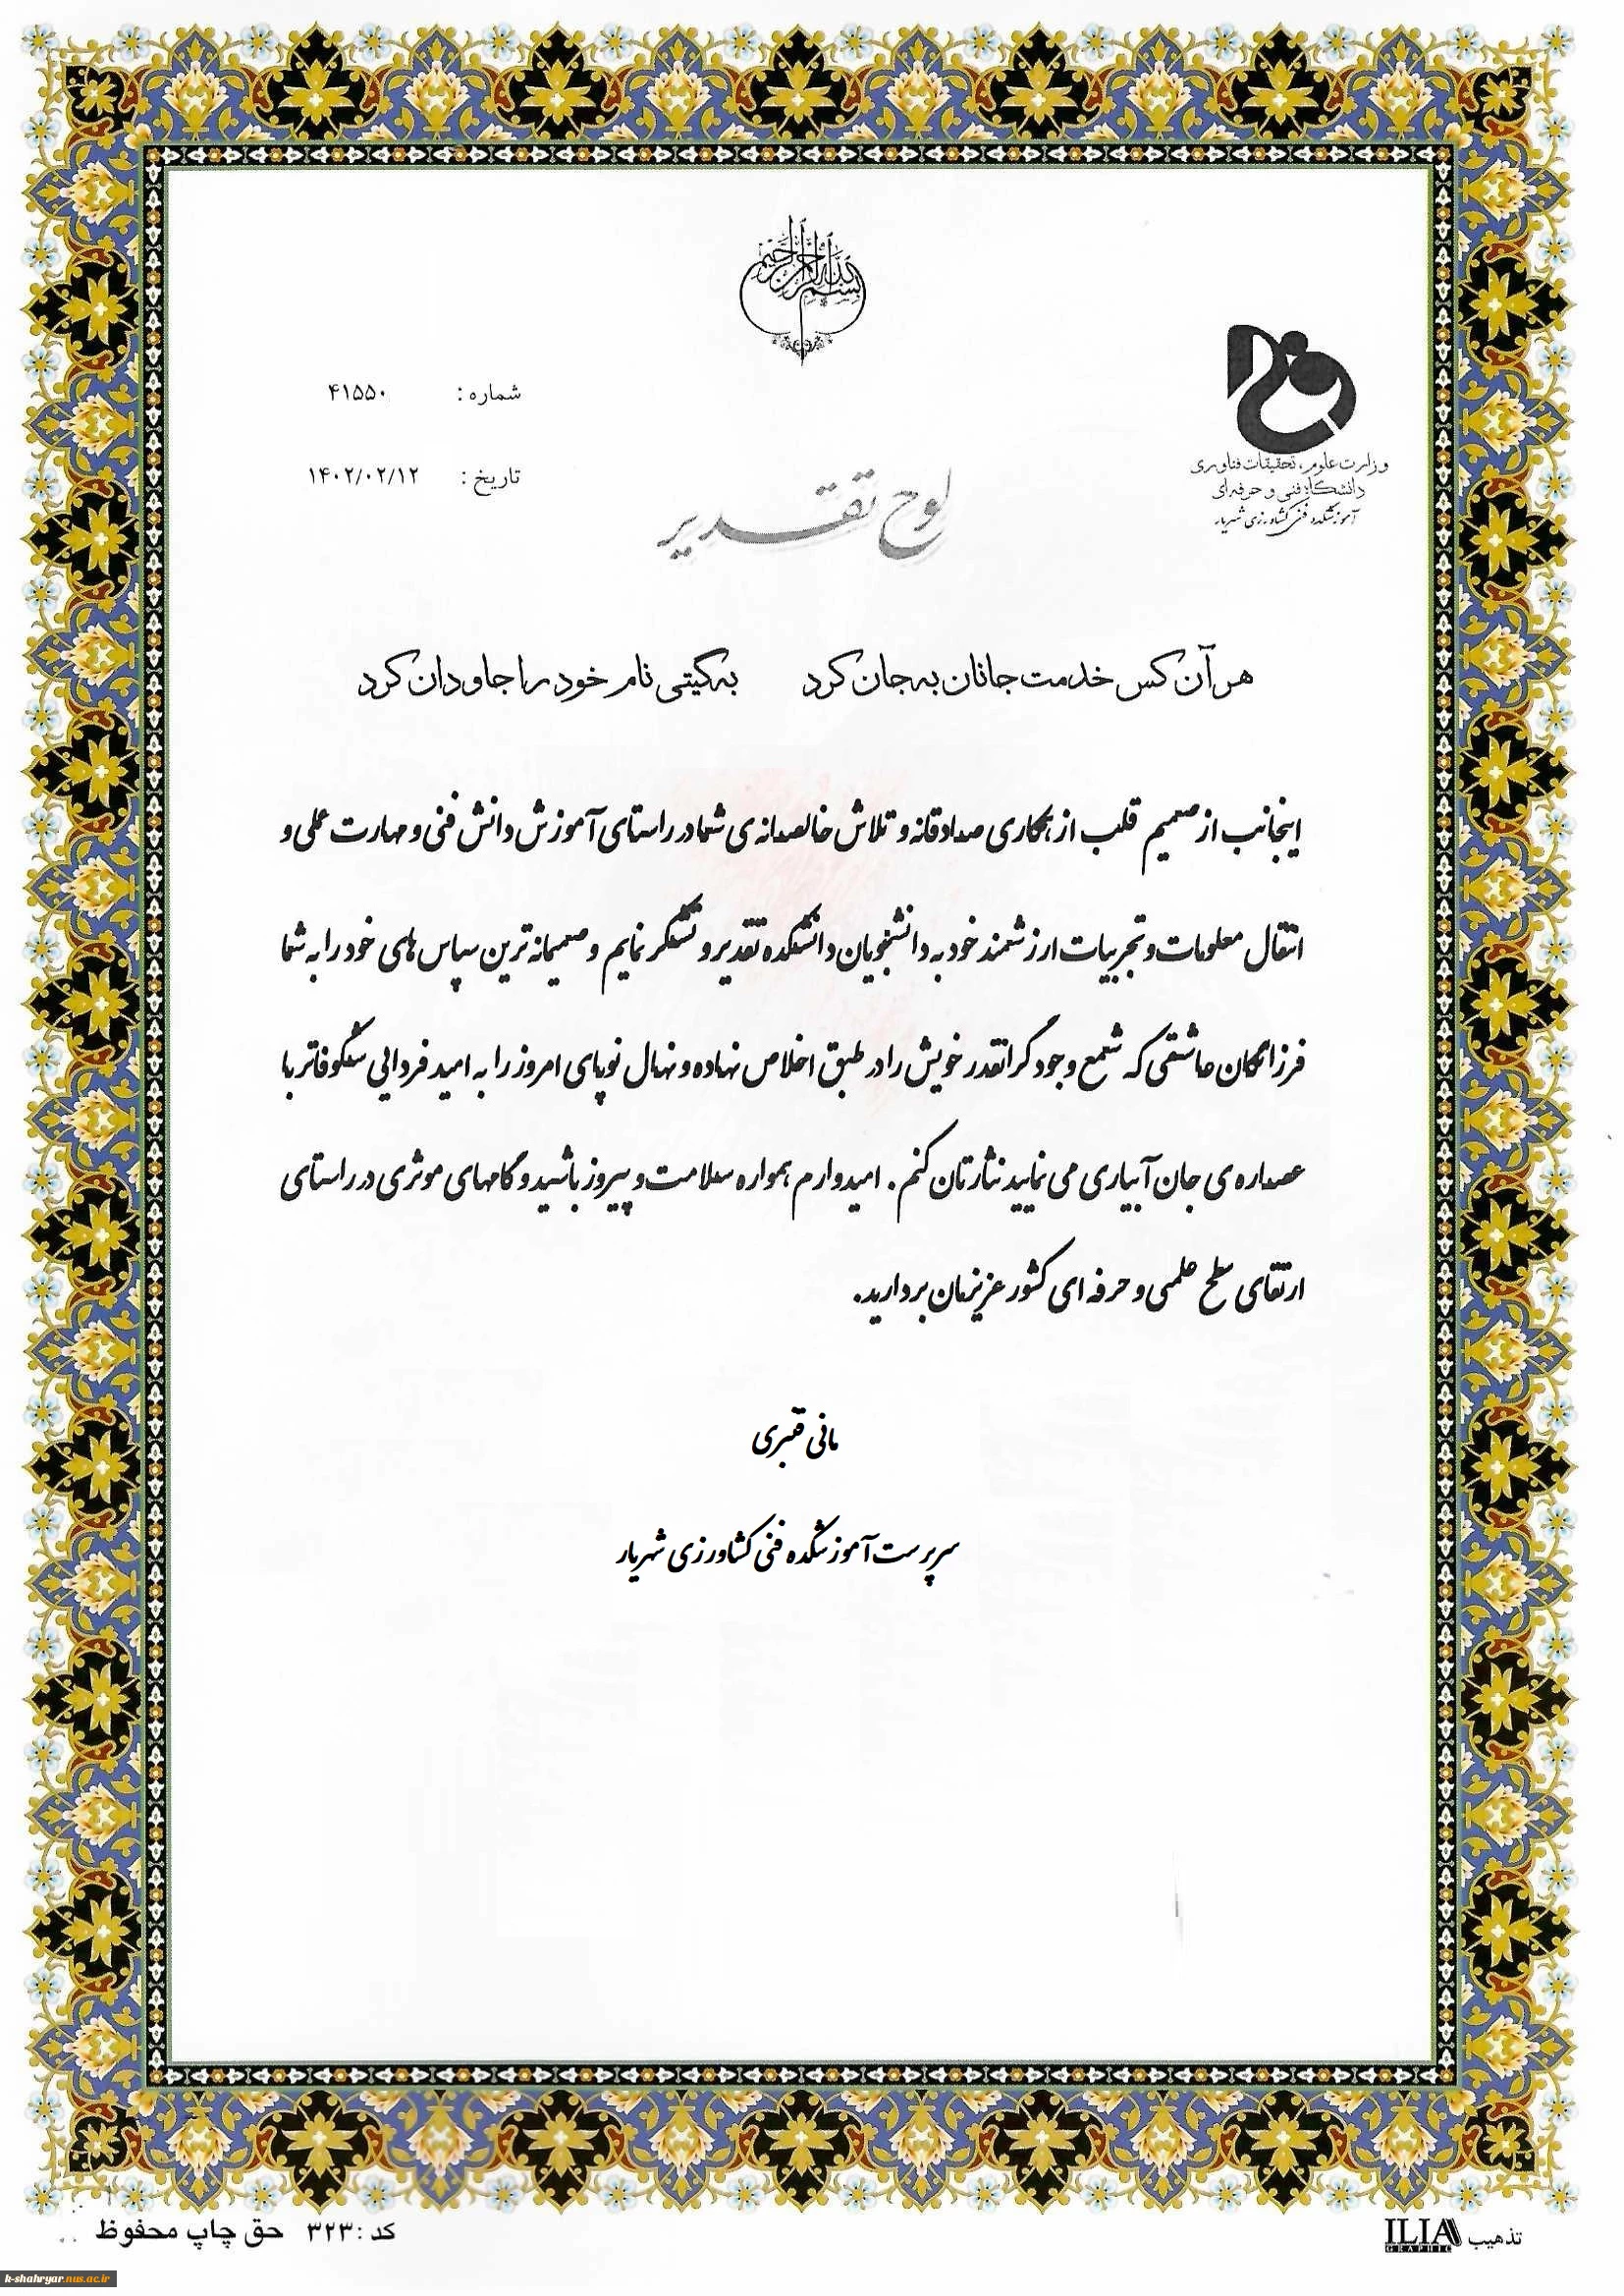 بسم الله الرحمن الرحیم
وزارت علوم، تحقیقات فناوری
دانشگاه فنی و حرفه‌ای
آموزشکده فنی کشاورزی شهریار
شماره : ۴۱۵۵۰
تاریخ : ۱۴۰۲/۰۲/۱۲
لوح تقدیر
هر آن کس خدمت جانان به جان کرد به گیتی نام خود را جاودان کرد
اینجانب از صمیم قلب از همکاری صادقانه و تلاش خالصانه ی شما در راستای آموزش دانش فنی و مهارت عملی و
انتقال معلومات و تجربیات ارزشمند خود به دانشجویان دانشکده تقدیر و تشکر نمایم و صمیمانه ترین سپاس های خود را به شما
فرزانگان عاشقی که شمع وجود گرانقدر خویش را در طبق اخلاص نهاده و نهال نوپای امروز را به امید فردایی شکوفاتر با
عصاره ی جان آبیاری می نمایید نثارتان کنم . امیدوارم همواره سلامت و پیروز باشید و گامهای موثری در راستای
ارتقای سطح علمی و حرفه ای کشور عزیزمان بردارید.
مانی قنبری
سرپرست آموزشکده فنی کشاورزی شهریار
کد : ۳۲۳ حق چاپ محفوظ
تذهیب ILIA
GRAPHIC
k-shahryar.nus.ac.ir